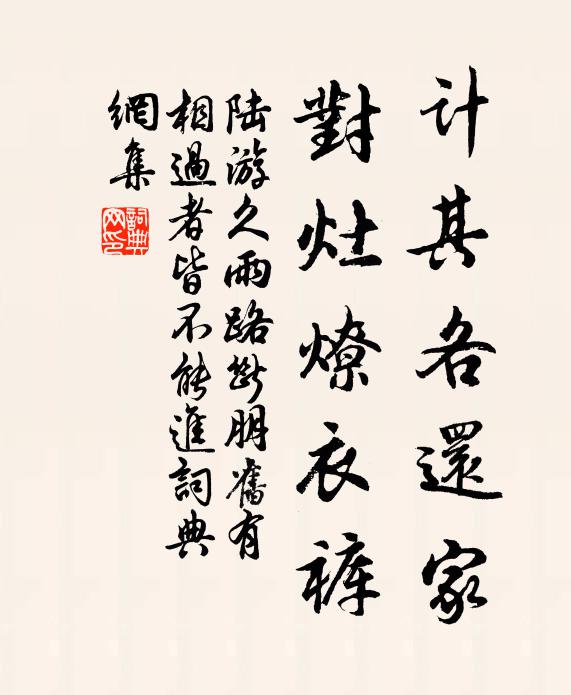 计其各還家
對灶燎衣裤
陆游久雨路断朋舊有
相過者皆不能進詞典
網集
詞典
网印